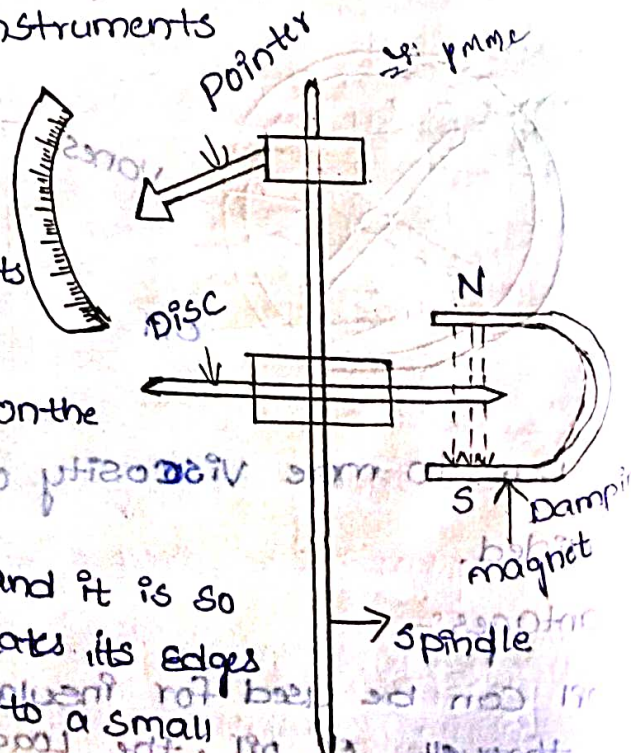 nstruments
Pointer
Eg: PMMC
ts
Disc
N
on the
S
Dampi
magnet
and it is so
ates its Edges
to a small
Spindle